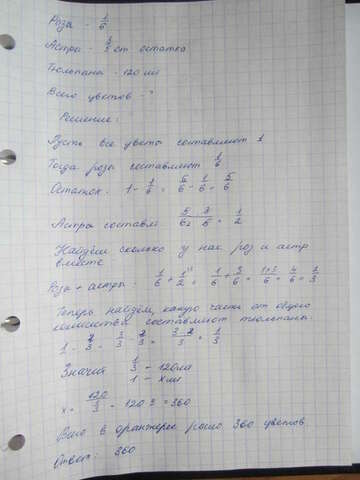 Роза - 1/6
Астра - 3/5 от остатка
Тюльпаны - 120 шт
Всего цветов - ?
Решение:
Пусть все цветы составляют 1
Тогда розы составляют 1/6
Остаток: 1 - 1/6 = 6/6 - 1/6 = 5/6
Астры составл 5/6 * 3/5 = 1/2
Найдём сколько у нах роз и астр
вместе
Роза + астры: 1/6 + 1/2 = 1/6 + 3/6 = 1+3/6 = 4/6 = 2/3
Теперь найдём, какую часть от общего
количества составляют тюльпаны:
1 - 2/3 = 3/3 - 2/3 = 3-2/3 = 1/3
Значит 1/3 - 120 шт
1 - x шт
x = 120 3 = 360
Всего в оранжерее росло 360 цветов
Ответ: 360